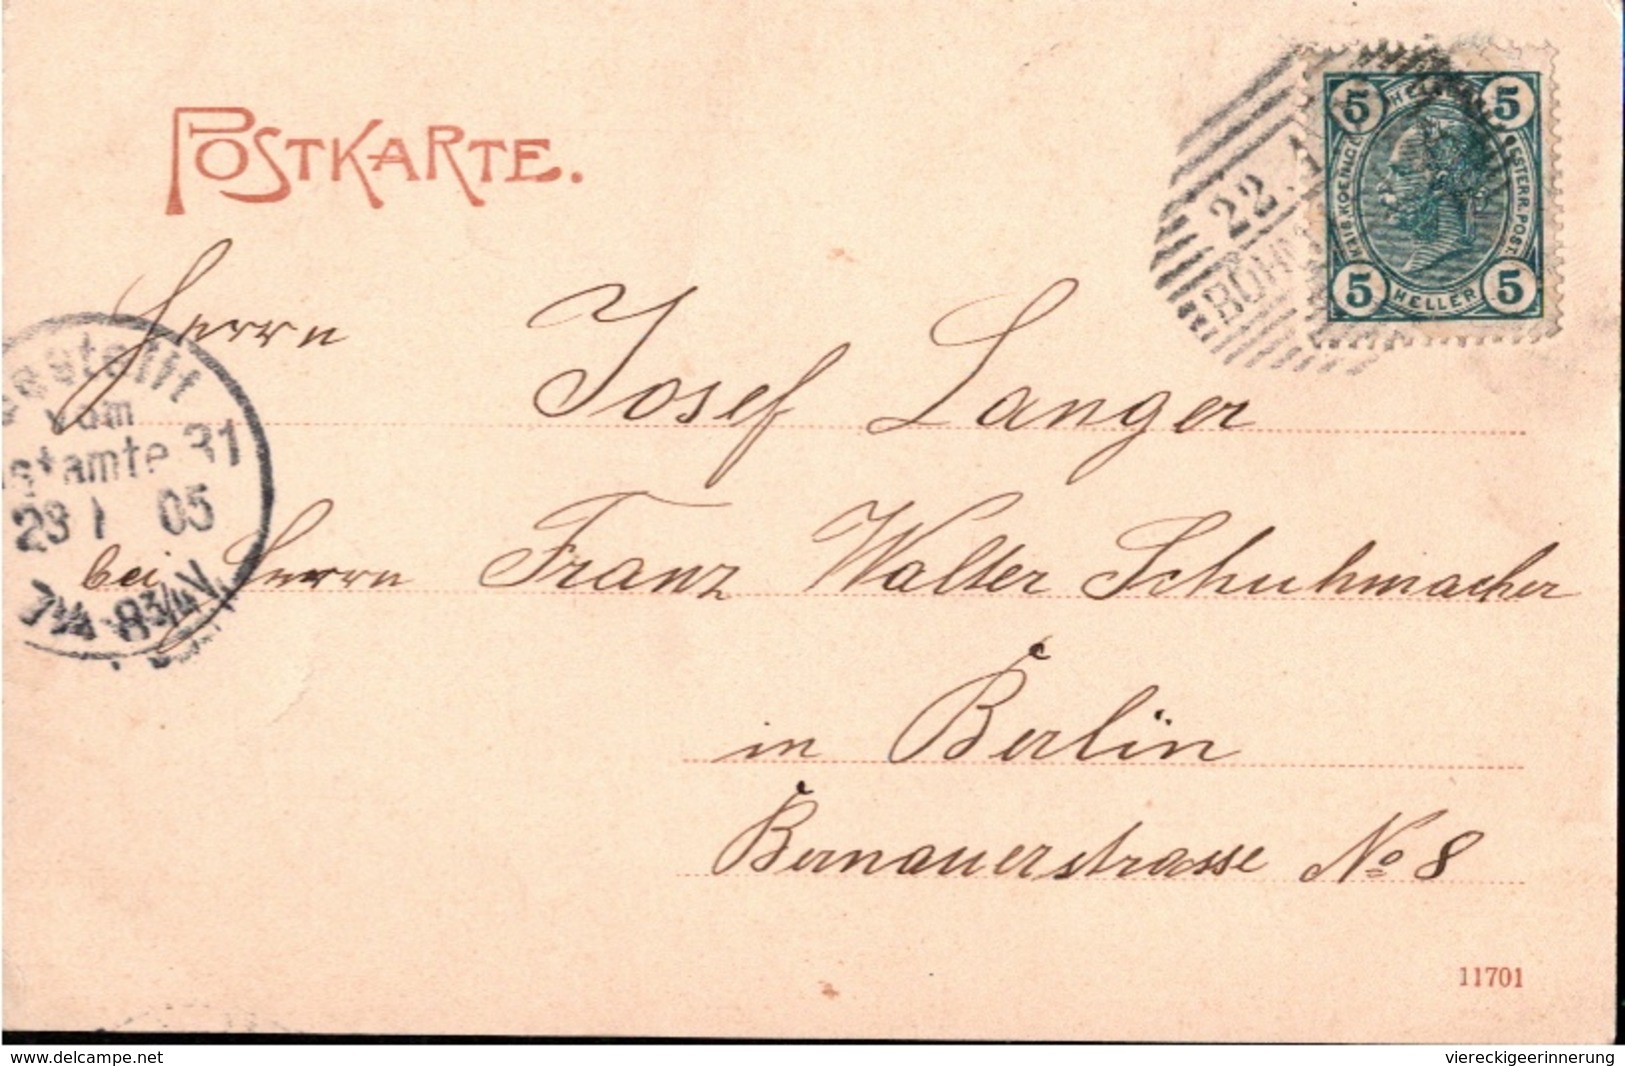 POSTKARTE.
5 5
KAIS. KOENGL. OESTERR. POST.
5 HELLER 5
22.1
BÖHM
Herrn Josef Langer
bei Herrn Franz Walter Schuhmacher
in Berlin
Bernauerstrasse No 8
Bestellt
vom
Postamte 31
23 1 05
7¼-8¾N
11701
www.delcampe.net
viereckigeerinnerung